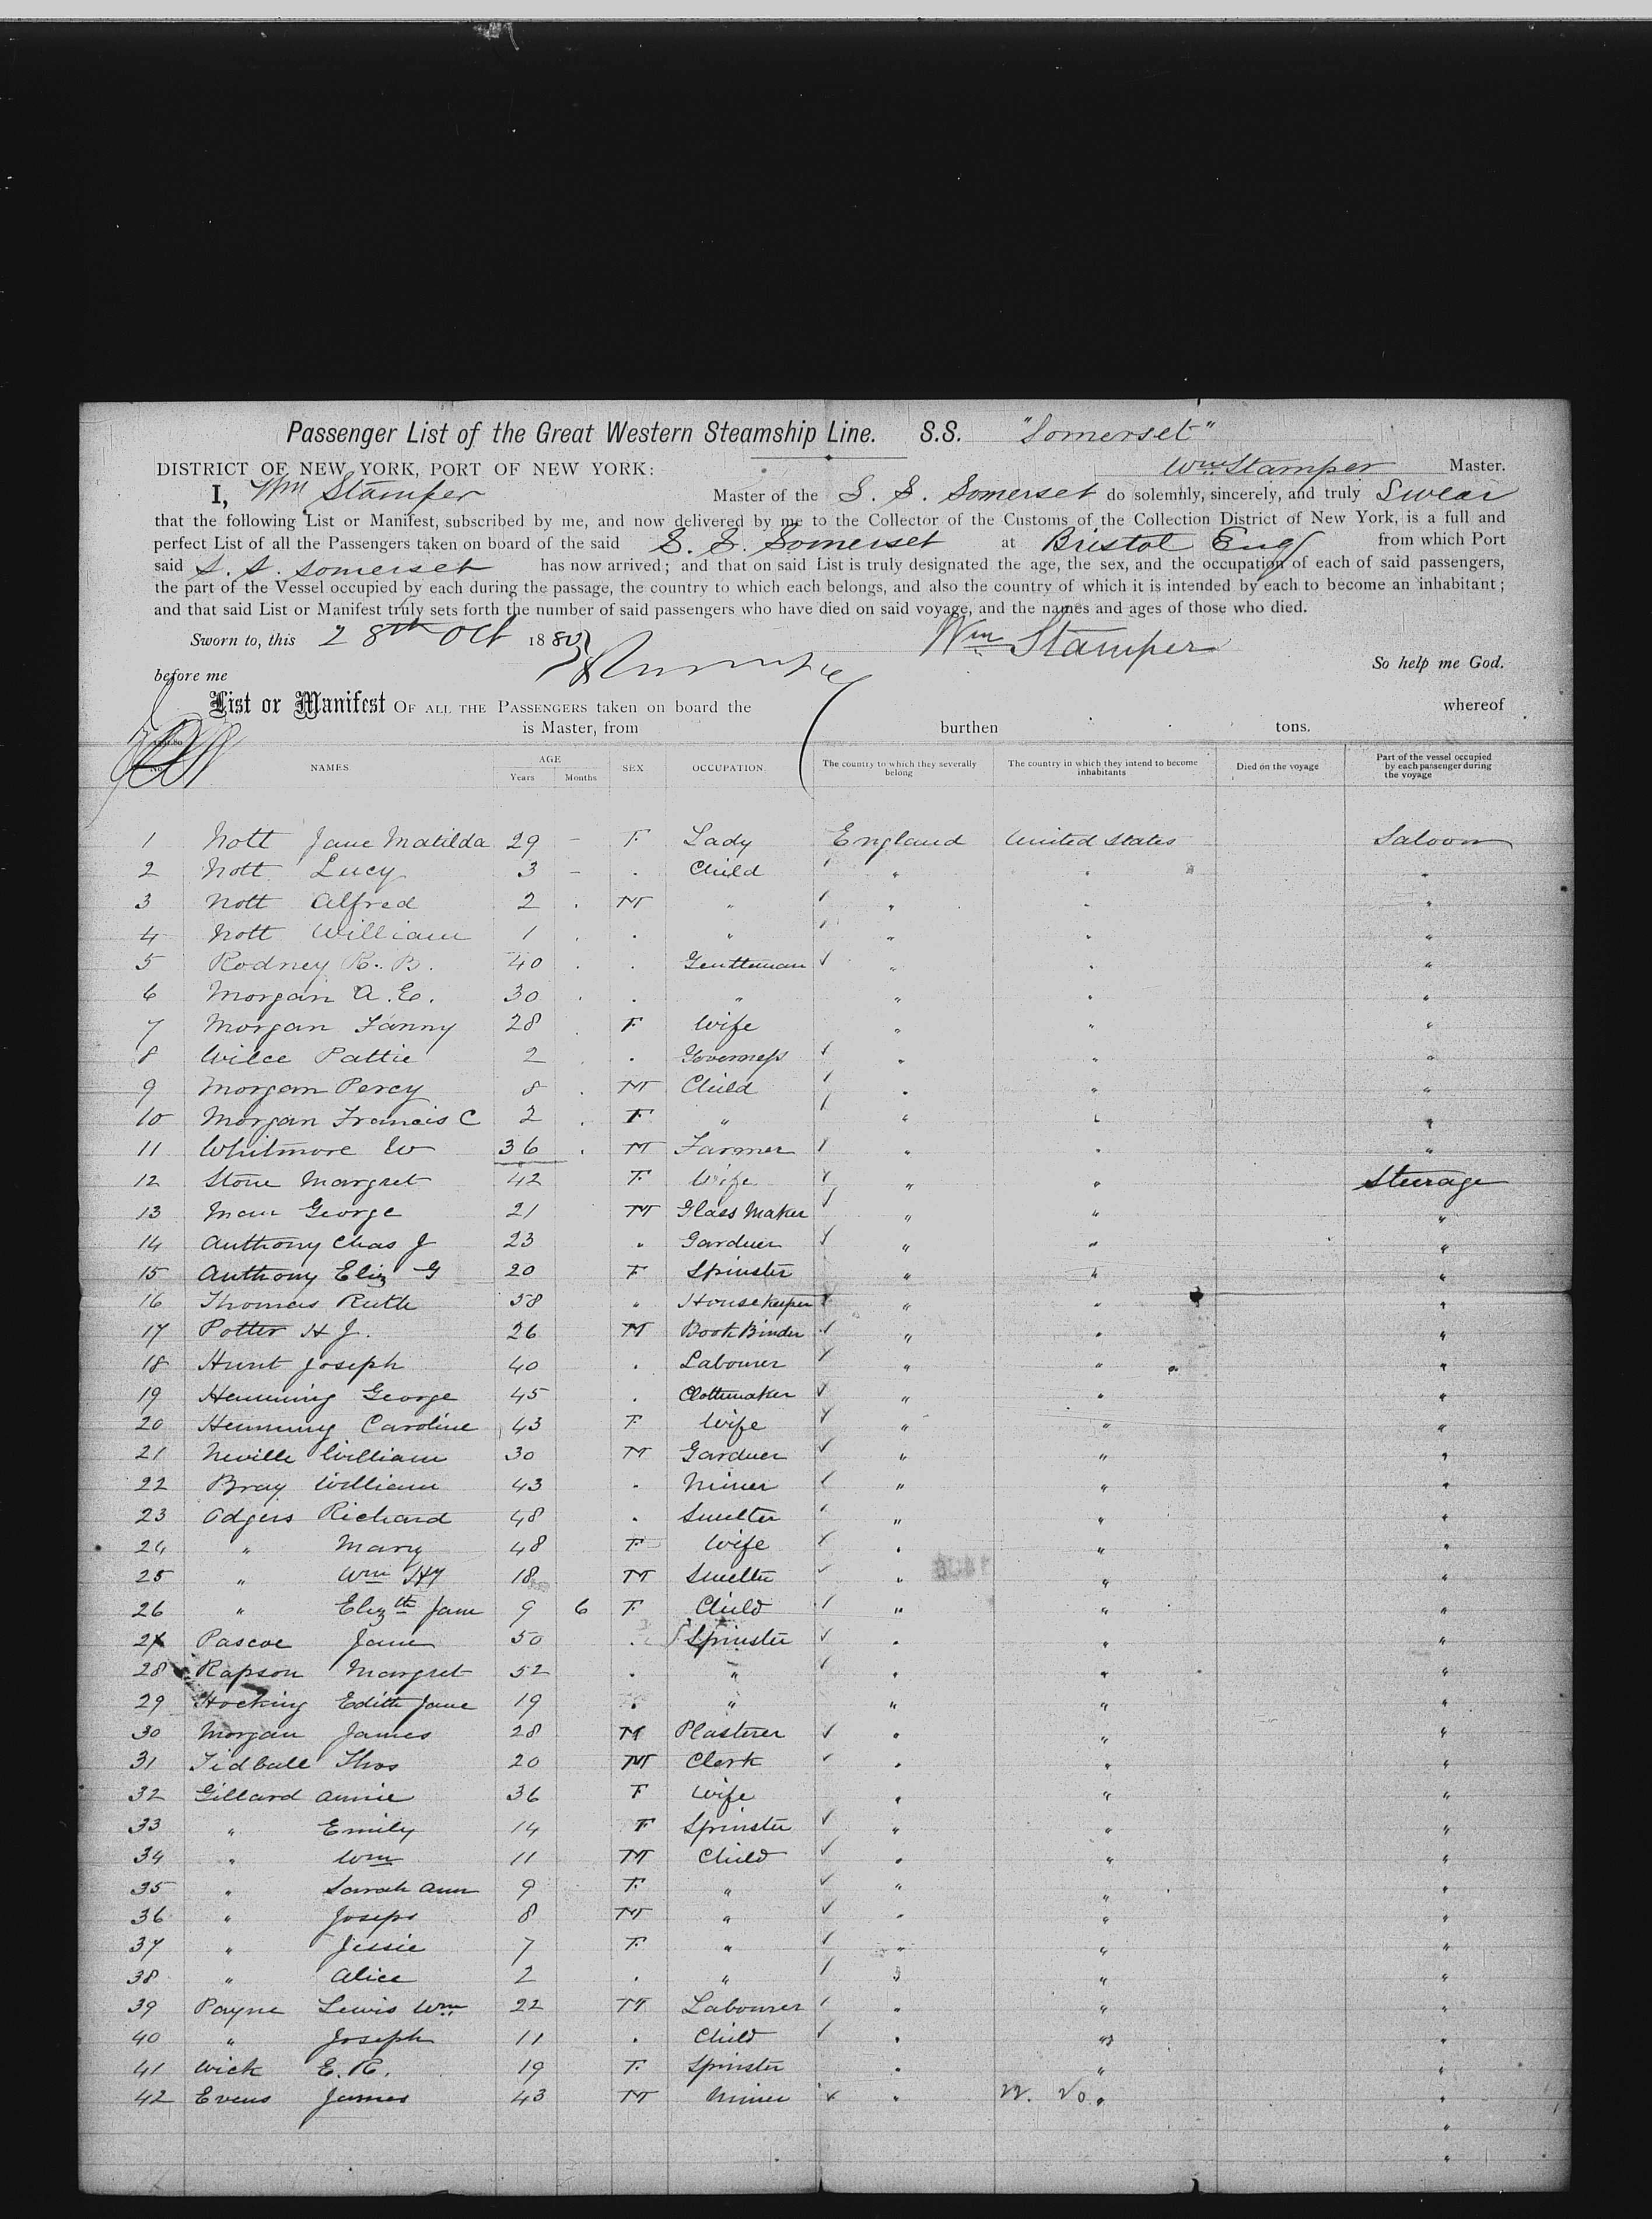 Passenger List of the Great Western Steamship Line. S.S. "Somerset"
DISTRICT OF NEW YORK, PORT OF NEW YORK: Wm Stamper Master.
I, Wm Stamper Master of the S. S. Somerset do solemnly, sincerely, and truly Swear
that the following List or Manifest, subscribed by me, and now delivered by me to the Collector of the Customs of the Collection District of New York, is a full and
perfect List of all the Passengers taken on board of the said S. S. Somerset at Bristol Eng from which Port
said S. S. Somerset has now arrived; and that on said List is truly designated the age, the sex, and the occupation of each of said passengers,
the part of the Vessel occupied by each during the passage, the country to which each belongs, and also the country of which it is intended by each to become an inhabitant;
and that said List or Manifest truly sets forth the number of said passengers who have died on said voyage, and the names and ages of those who died.
Sworn to, this 28th Oct 1880 Wm Stamper
before me So help me God.
List or Manifest OF ALL THE PASSENGERS taken on board the whereof
is Master, from burthen tons.
No. NAMES. AGE Years Months SEX OCCUPATION. The country to which they severally belong The country in which they intend to become inhabitants Died on the voyage Part of the vessel occupied by each passenger during the voyage
1 Nott Jane Matilda 29 – F Lady England United States Saloon
2 Nott Lucy 3 – . Child " " "
3 Nott Alfred 2 . M " " " "
4 Nott William 1 . . " " " "
5 Rodney R. B. 40 . . Gentleman " " "
6 Morgan A. E. 30 . . " " " "
7 Morgan Fanny 28 . F Wife " " "
8 Wilce Pattie 2 . . Governess " " "
9 Morgan Percy 8 . M Child " " "
10 Morgan Francis C 2 . F " " " "
11 Whitmore W 36 . M Farmer " " "
12 Stone Margret 42 F Wife " " Steerage
13 George 21 M Glass Maker " " "
14 Anthony Chas J 23 " Garduer " " "
15 Anthony Eliz G 20 F Spinster " " "
16 Thomas Ruth 58 " Housekeeper " " "
17 Potter H J. 26 M Book Binder " " "
18 Hunt Joseph 40 . Labourer " " "
19 Hemming George 45 . Clothmaker " " "
20 Hemming Caroline 43 F Wife " " "
21 Neville William 30 M Garduer " " "
22 Bray William 43 . Miner " " "
23 Odgers Richard 48 . Smelter " " "
24 " Mary 48 F Wife " " "
25 " Wm Hy 18 M Smelter " " "
26 " Elizth Jane 9 6 F Child " " "
27 Pascoe Jane 50 . Spinster " " "
28 Rapson Margret 52 . " " " "
29 Hocking Edith Jane 19 . " " " "
30 Morgan James 28 M Plasterer " " "
31 Tidball Thos 20 M Clerk " " "
32 Gillard Annie 36 F Wife " " "
33 " Emily 14 F Spinster " " "
34 " Wm 11 M Child " " "
35 " Sarah Ann 9 F " " " "
36 " Joseph 8 M " " " "
37 " Jessie 7 F " " " "
38 " Alice 2 . " " " "
39 Payne Lewis Wm 22 M Labourer " " "
40 " Joseph 11 . Child " " "
41 Wick E. R. 19 F Spinster " " "
42 Evens James 43 M Miner " " "